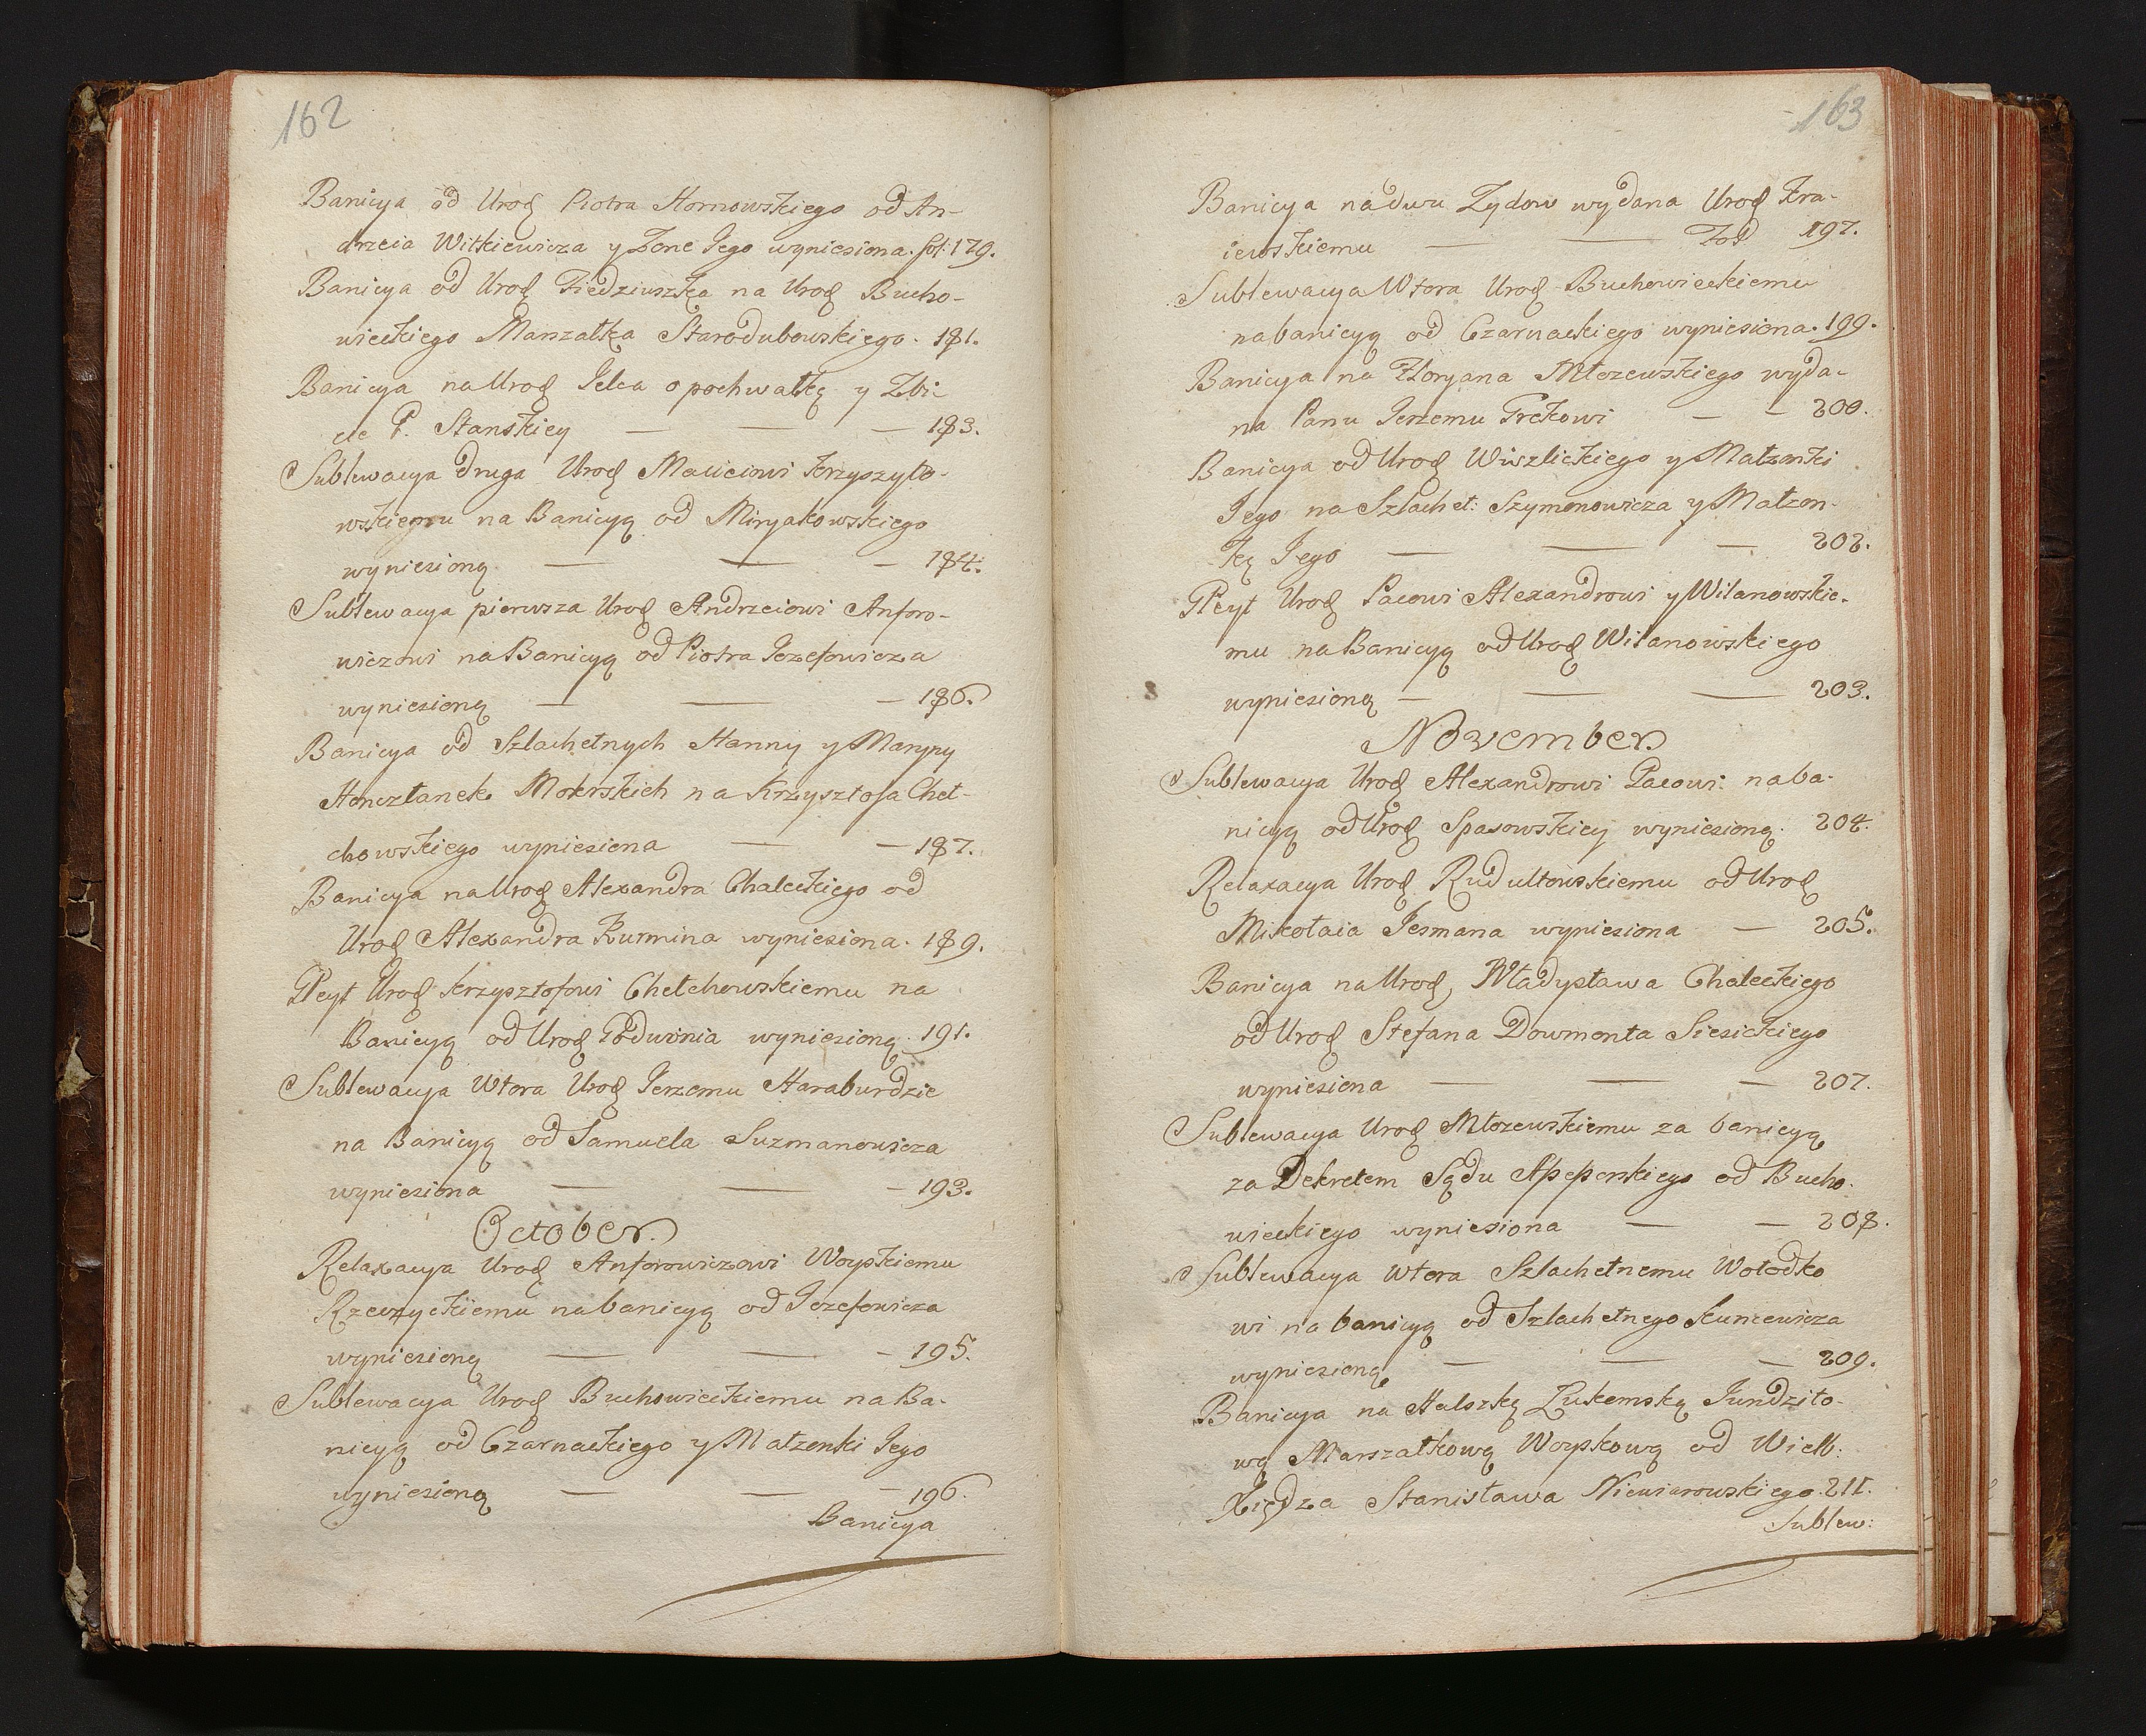 162
Banicya od Urod Piotra Hornowskiego od An-
drzeia Witkiewicza y Zone Jego wyniesiona. fol: 179.
Banicya od Urod Fiedziuszka na Urod Bucho-
wieckiego Marszałka Starodubowskiego. 181.
Banicya na Urod Jelca o pochwałkę y Zbi-
cie P. Stanskiey — — — 183.
Sublewacya druga Urod Maciciowi Krzyszyło-
wskiemu na Banicyą od Mirzakowskiego
wyniesioną — — — 184.
Sublewacya pierwsza Urod Andrzeiowi Anforo-
wiczowi na Banicyą od Piotra Jozefowicza
wyniesioną — — — 186.
Banicya od Szlachetnych Hanny y Maryny
Mokrskich na Krzysztofa Cheł-
chowskiego wyniesiona — — 187.
Banicya na Urod Alexandra Chaleckiego od
Urod Alexandra Kurmina wyniesiona. 189.
Gleyt Urod Krzysztofowi Chełchowskiemu na
Banicyą od Urod Podwinia wyniesioną. 191.
Sublewacya Wtora Urod Jerzemu Haraburdzie
na Banicyą od Samuela Suzmanowicza
wyniesiona — — — 193.
October.
Relaxacya Urod Anforowiczowi Woyskiemu
Rzeczyckiemu na banicyą od Jozefowicza
wyniesioną — — — 195.
Sublewacya Urod Buchowieckiemu na Ba-
nicyą od Czarnackiego y Małzonki Jego
wyniesioną — — — 196.
Banicya
163
Banicya na dwu Zydow wydana Urod Kra-
iewskiemu — — fol 197.
Sublewacya Wtora Urod Buchowieckiemu
na banicyą od Czarnackiego wyniesiona. 199.
Banicya na Floryana Młozewskiego wyda-
na Panu Jerzemu Grekowi — — 200.
Banicya od Urod Wiszlickiego y Małzonki
Jego na Szlachet: Szymonowicza y Małzon-
kę Jego — — — 202.
Gleyt Urod Pacowi Alexandrowi y Wilanowskie-
mu na Banicyą od Urod Wilanowskiego
wyniesioną — — — 203.
November.
Sublewacya Urod Alexandrowi Pacowi na ba-
nicyą od Urod Spasowskiey wyniesioną. 204.
Relaxacya Urod Rudultowskiemu od Urod
Mikołaia Jesmana wyniesiona — 205.
Banicya na Urod, Władysława Chaleckiego
od Urod Stefana Dowmonta Siesickiego
wyniesiona — — — 207.
Sublewacya Urod Młozewskiemu za banicyą
za Dekretem Sądu Assessorskiego od Bucho-
wieckiego wyniesiona — — 208.
Sublewacya Wtora Szlachetnemu Wołodko
wi na banicyą od Szlachetnego Kuncewicza
wyniesioną — — — 209.
Banicya na Halszkę Łukomską Jundziło-
wą Marszałkową Woyskową od Wielb:
Xiędza Stanisława Niewiarowskiego. 211.
Sublew: